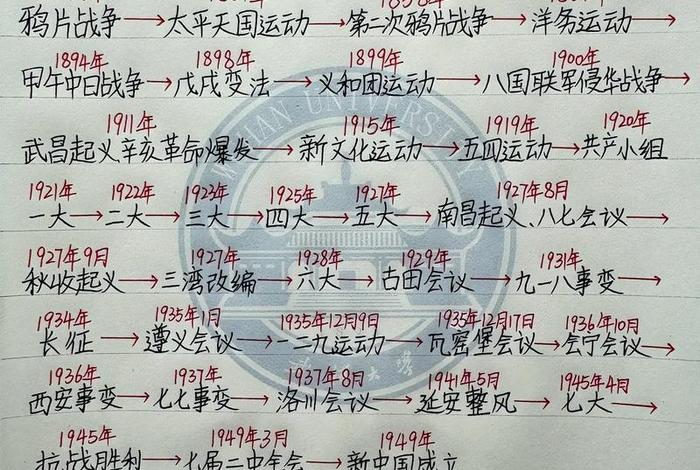 鸦片战争→太平天国运动→第二次鸦片战争→洋务运动→
1894年 1898年 1899年 1900年
甲午中日战争→戊戌变法→义和团运动→八国联军侵华战争→
1911年 1915年 1919年 1920年
武昌起义、辛亥革命爆发→新文化运动→五四运动→共产小组
1921年 1922年 1923年 1925年 1927年 1927年8月
一大→二大→三大→四大→五大→南昌起义、八七会议→
1927年9月 1927年 1928年 1929年 1931年
秋收起义→三湾改编→六大→古田会议→九一八事变→
1934年 1935年1月 1935年12月9日 1935年12月17日 1936年10月
长征→遵义会议→一二九运动→瓦窑堡会议→会宁会议→
1936年 1937年 1937年8月 1941年5月 1945年4月
西安事变→七七事变→洛川会议→延安整风→七大→
1945年 1949年3月 1949年
抗战胜利→七届二中全会→新中国成立
WUHAN UNIVERSITY